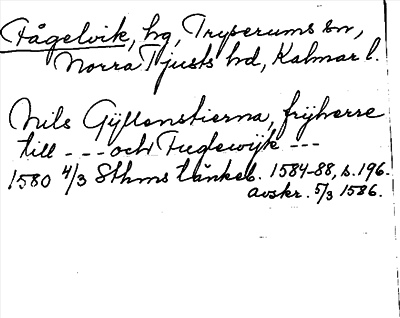 Fågelvik, hg, Tryserums sn,
Norra Tjusts hd, Kalmar l.
Nils Gyllenstierna, frijherre
till --- och Fuglewijk ---
1580 4/3 Sthms tänkeb. 1584-88, s. 196.
avskr. 5/3 1586.